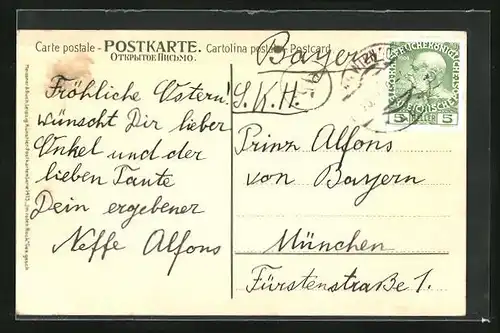 Carte postale - POSTKARTE. - Cartolina postale - Postcard
Открытое Письмо.
Fröhliche Ostern
wünscht Dir lieber
Onkel und der
lieben Tante
Dein ergebener
Neffe Alfons
Bayern
S.K.H.
Prinz Alfons
von Bayern
München
Fürstenstraße 1.
WIEN
5 HELLER 5